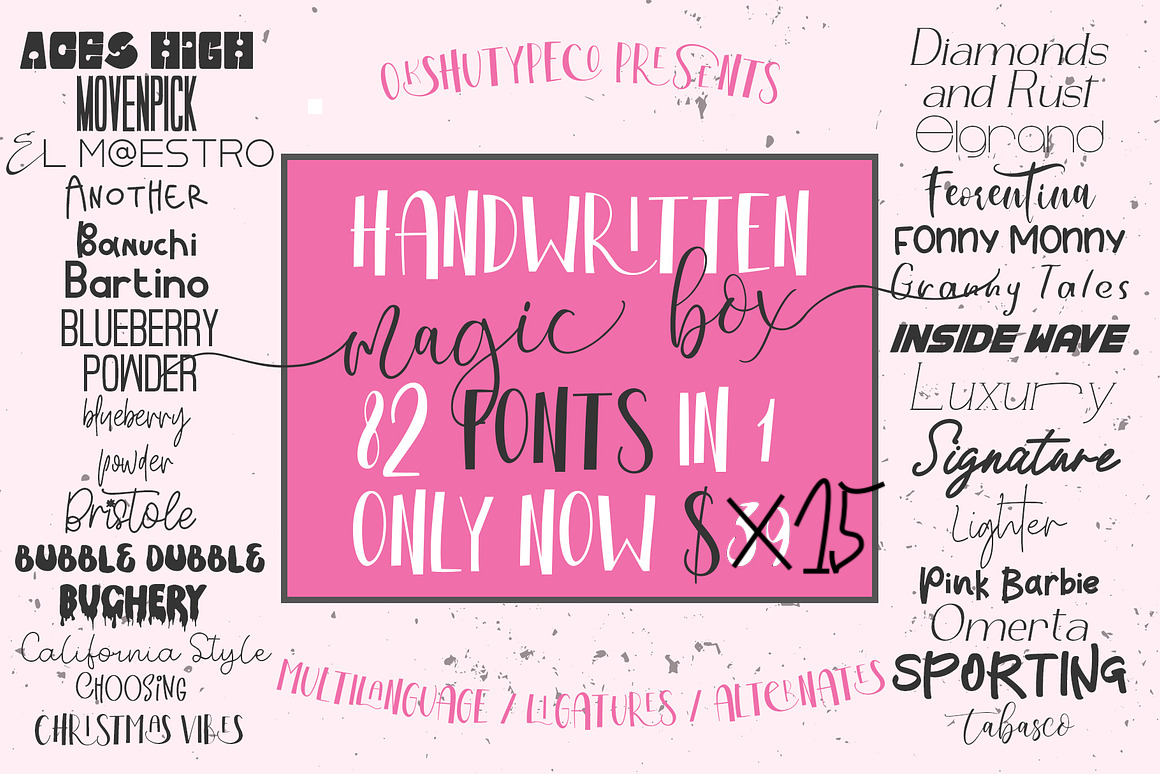 OKSHUTYPECO PRESENTS
ACES HIGH
MOVENPICK
EL M@ESTRO
ANOTHER
Banuchi
Bartino
BLUEBERRY
POWDER
blueberry
powder
Bristole
BUBBLE DUBBLE
BUGHERY
California Style
CHOOSING
CHRISTMAS VIBES
HANDWRITTEN
magic box
82 FONTS IN 1
ONLY NOW $39 15
MULTILANGUAGE / LIGATURES / ALTERNATES
Diamonds
and Rust
Elgrand
Feorentina
FONNY MONNY
Granny Tales
INSIDE WAVE
Luxury
Signature
Lighter
Pink Barbie
Omerta
SPORTING
tabasco